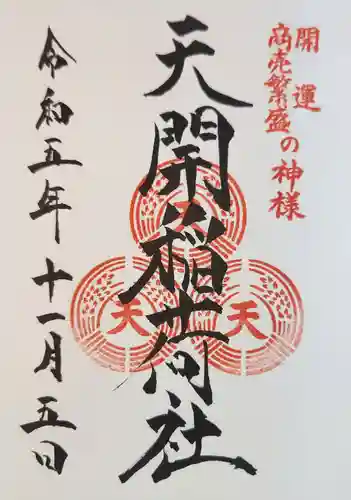 開運
商売繁盛の神様
天開稲荷社
天
天
令和五年十一月五日